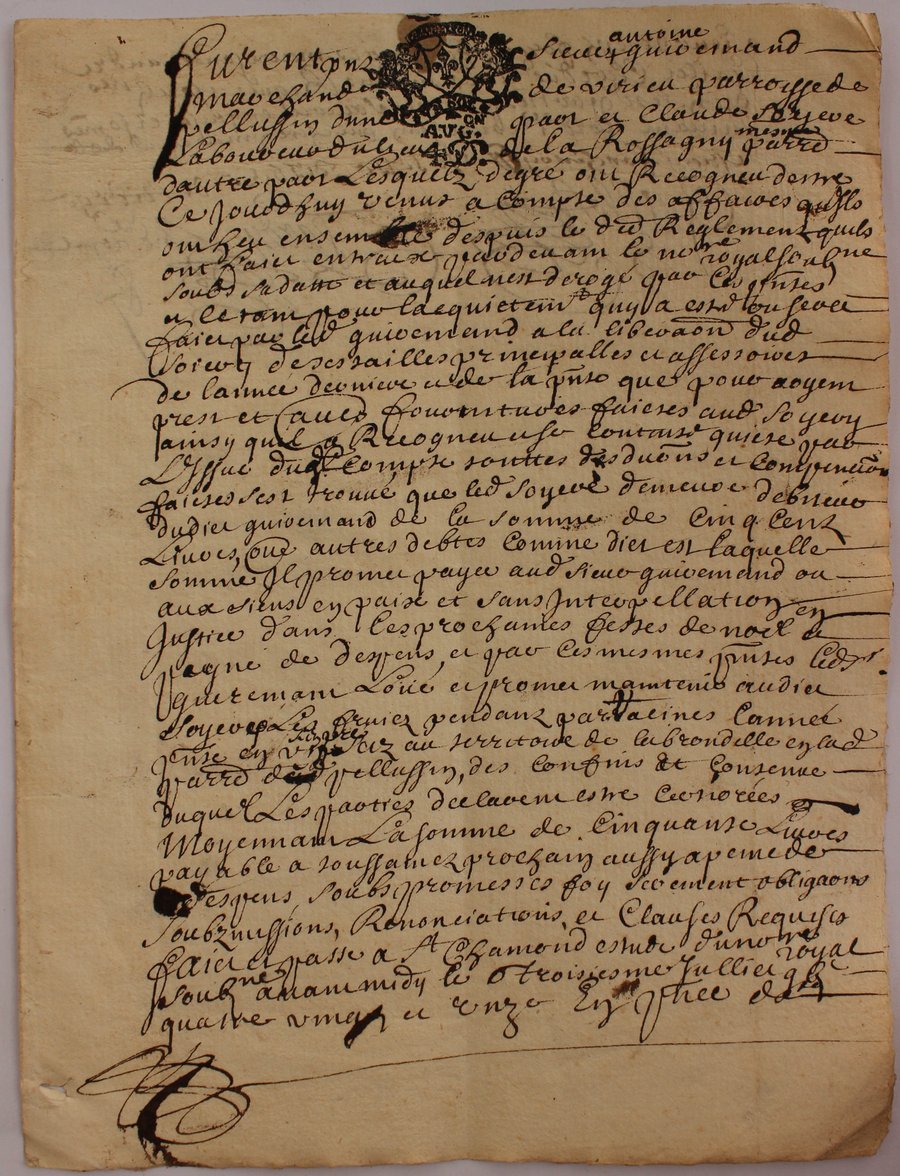 furent pnz sieur antoine guivemand
marchand de virieu parroisse de
pellussin dune part et Claude Soyeve
Laboureur du lieu de la Rossagny mesme parr
AUG.
dautre part Lesquelz degré ont Recogneu destre
Ce jourdhuy venus a compte des affaires quils
ont heu ensemble despuis le d Reglement quils
ont faict entreux pardevant le no.re royal soubne
soubz sa datte et auquel nest derogé par ces pntes
quy a esté
faict par led guivemand a la liberaon dud
de ses tailles principalles et assessoires
de lannee derniere et de la pnte que pour argent
prest et fournitures faictes aud Soyeve
ainsy quil a Recogneu par
Lissue dud Compte touttes desduons et Compensaons
faictes sest trouvé que led Soyeve demeure debiteur
dudict guivemand de la somme de Cinq Centz
Livres, autres debtes comme dict est laquelle
somme Il promet payer aud sieur guivemand ou
aux siens en paix et sans Interpellation en
Justice dans les prochaines festes de noel a
peyne de despens, et par ces mesmes pntes led sr
guivemant Loüe et promet maintenir audict
Soyeve Les fruictz pendantz par racines lannee
pnte en au territoire de la brondelle en lad
parr de pellussin, des confins et contenue
duquel Les parties declarent estre
Moyennant La somme de Cinquante Livres
payable a toussainctz prochain aussy a peine de
despens, soubz promesses foy serement obligaons
soubzmissions, Renonciations, et Clauses Requises
faict et passé a St Chamond estude du no.re royal
soubne avant midy le troisiesme Juillet
quatre vingt et unze En pnce de